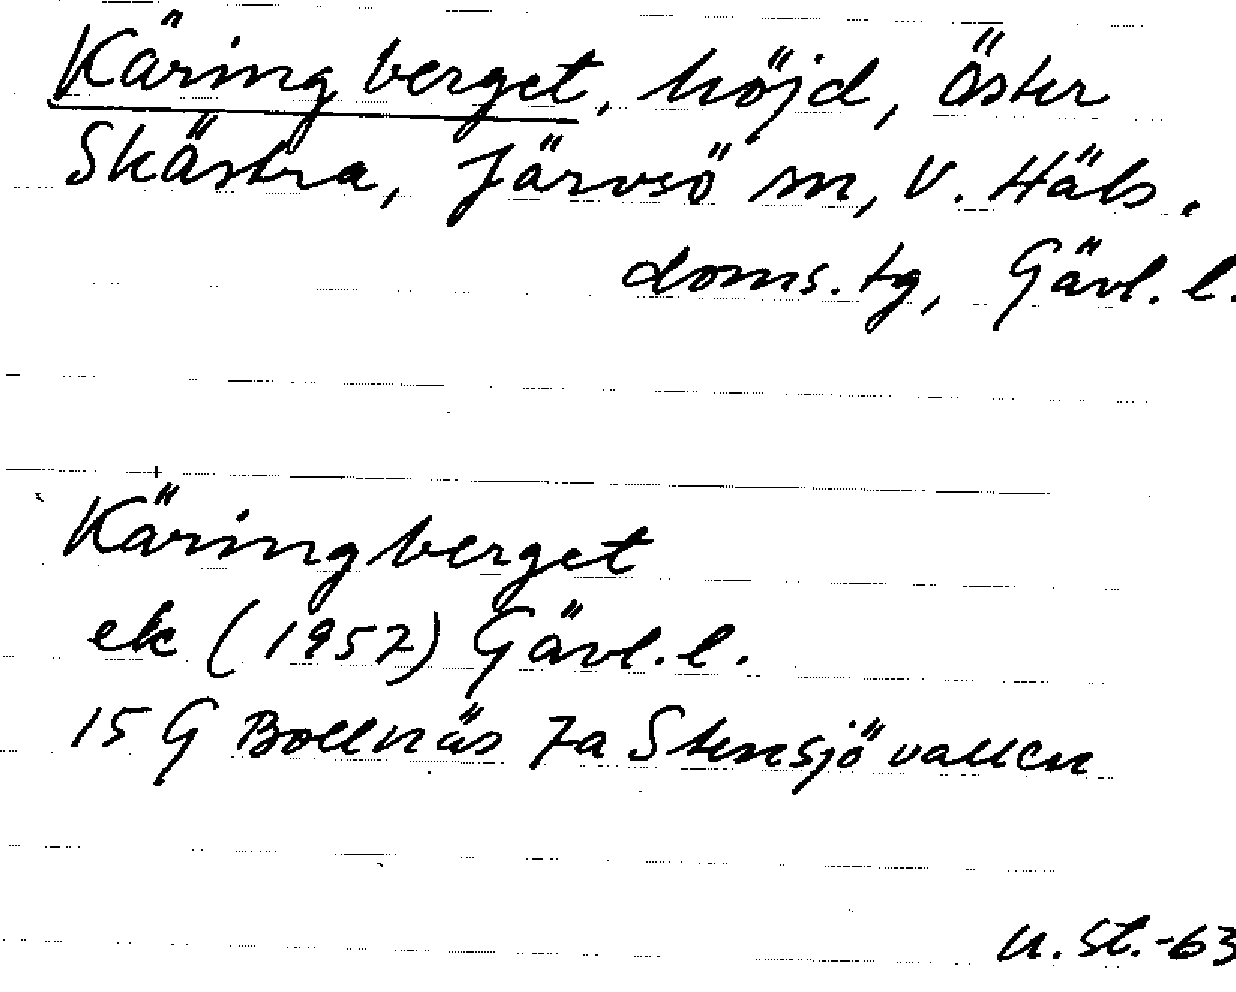 Käringberget, höjd, Öster
Skästra, Järvsö sn, V. Häls.
doms.tg, Gävl. l.
Käringberget
ek (1957) Gävl. l.
15 G Bollnäs 7a Stensjövallen
u. St. -63